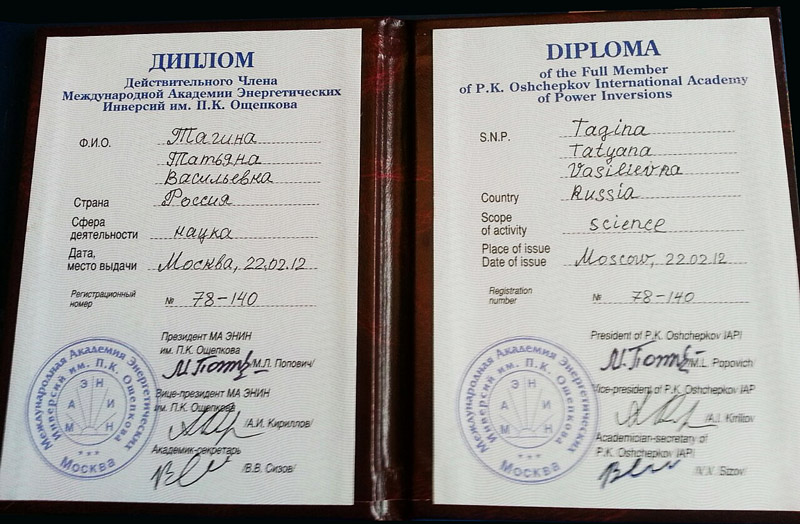 ДИПЛОМ
Действительного Члена
Международной Академии Энергетических
Инверсий им. П.К. Ощепкова
Ф.И.О. Тагина
Татьяна
Васильевна
Страна Россия
Сфера
деятельности наука
Дата,
место выдачи Москва, 22.02.12
Регистрационный
номер № 78-140
Президент МА ЭНИН
им. П.К. Ощепкова
/М.Л. Попович/
Вице-президент МА ЭНИН
им. П.К. Ощепкова
/А.И. Кириллов/
Академик-секретарь
/В.В. Сизов/
Международная Академия Энергетических
Инверсий им. П.К. Ощепкова
МАЭНИН
Москва
DIPLOMA
of the Full Member
of P.K. Oshchepkov International Academy
of Power Inversions
S.N.P. Tagina
Tatyana
Vasilievna
Country Russia
Scope
of activity science
Place of issue
Date of issue Moscow, 22.02.12
Registration
number № 78-140
President of P.K. Oshchepkov IAPI
/M.L. Popovich
Vice-president of P.K. Oshchepkov IAP
/A.I. Kirillov
Academician-secretary of
P.K. Oshchepkov IAPI
/V.V. Sizov/
Международная Академия Энергетических
Инверсий им. П.К. Ощепкова
МАЭНИН
Москва